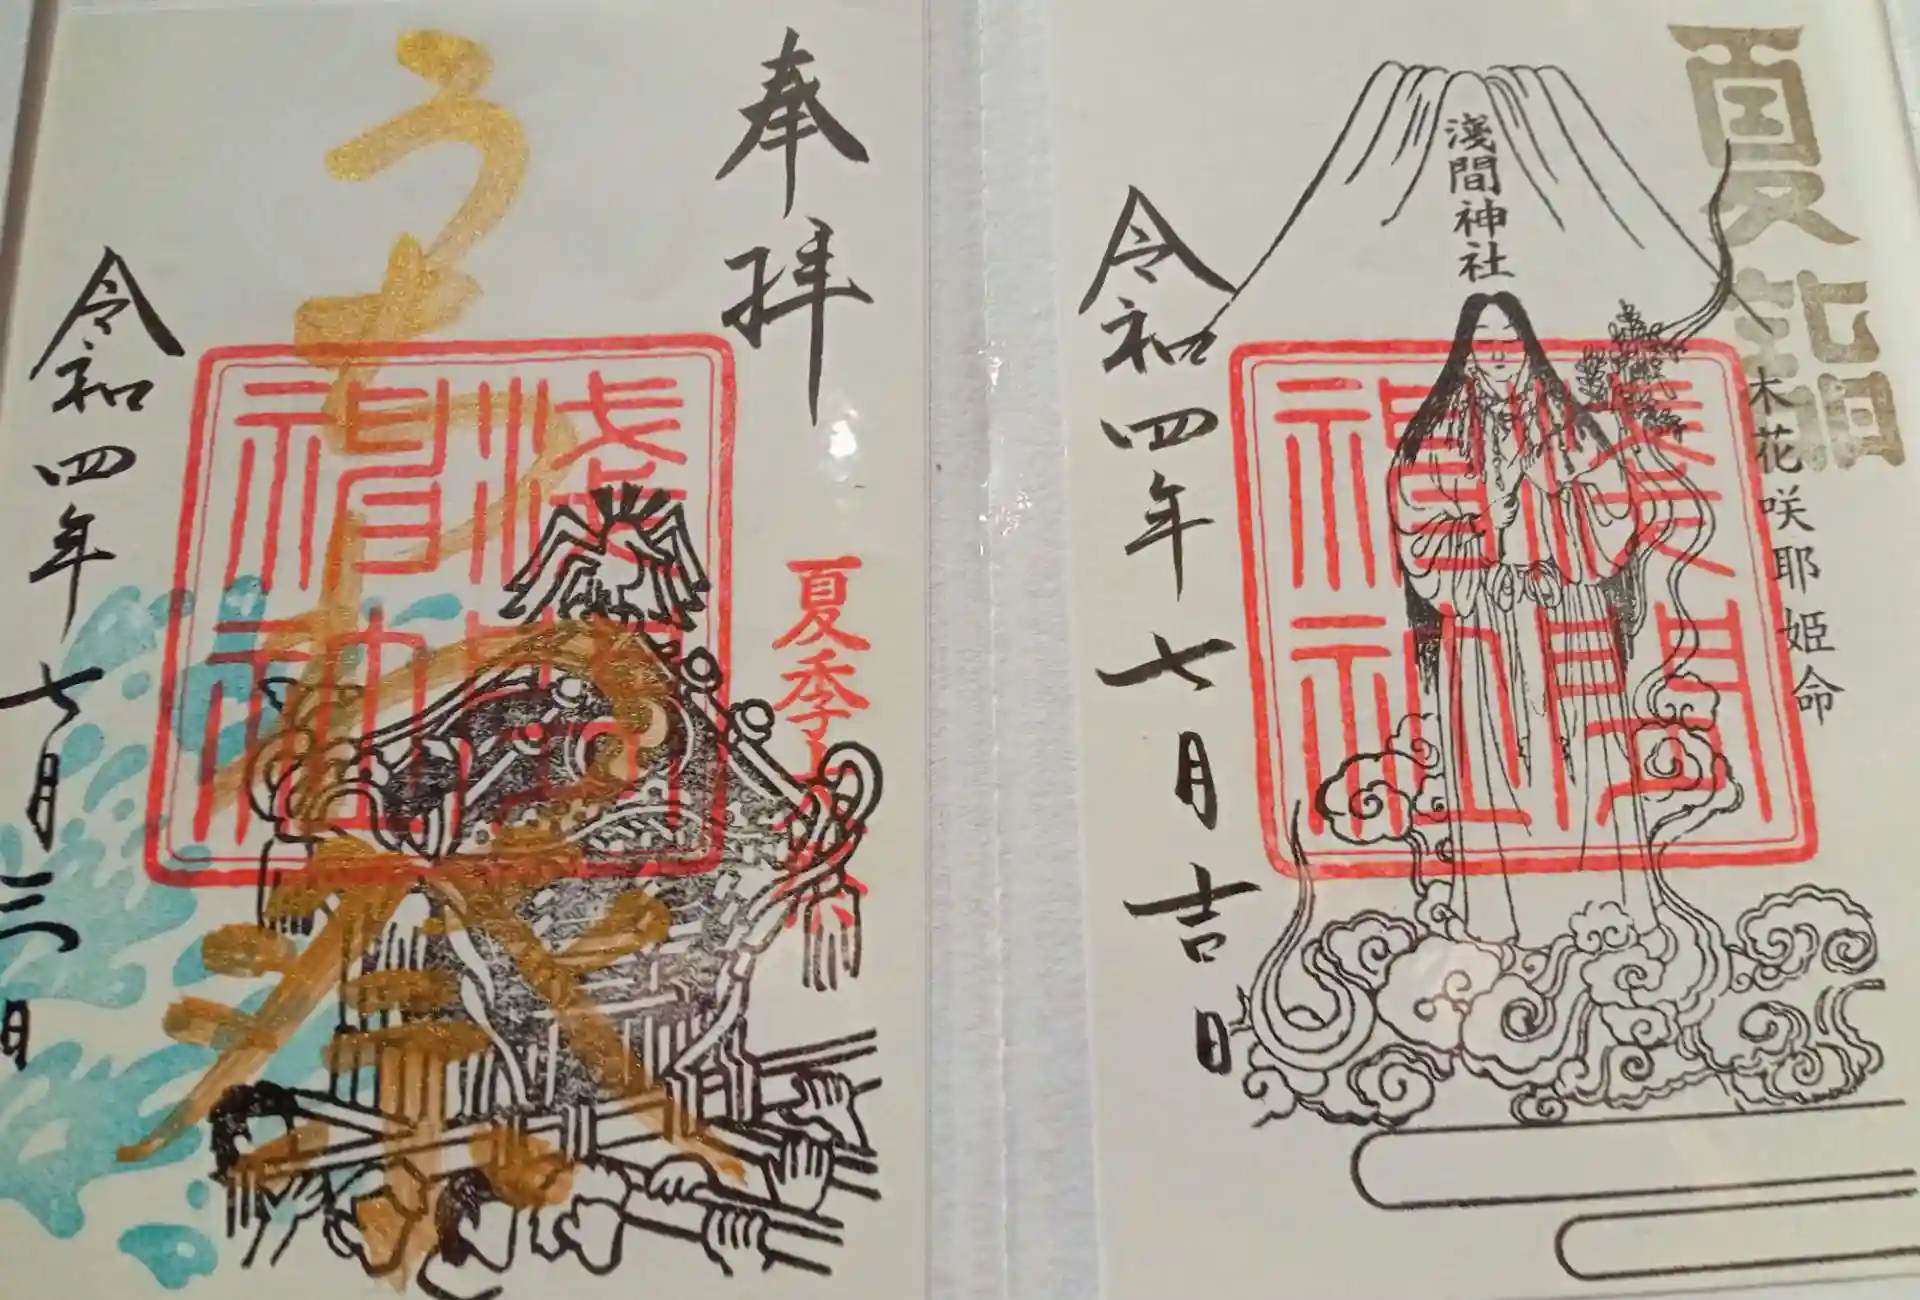 奉拝
夏季大祭
うちわ祭
浅間
神社
令和四年七月三日
夏詣
木花咲耶姫命
淺間神社
淺間
神社
令和四年七月吉日